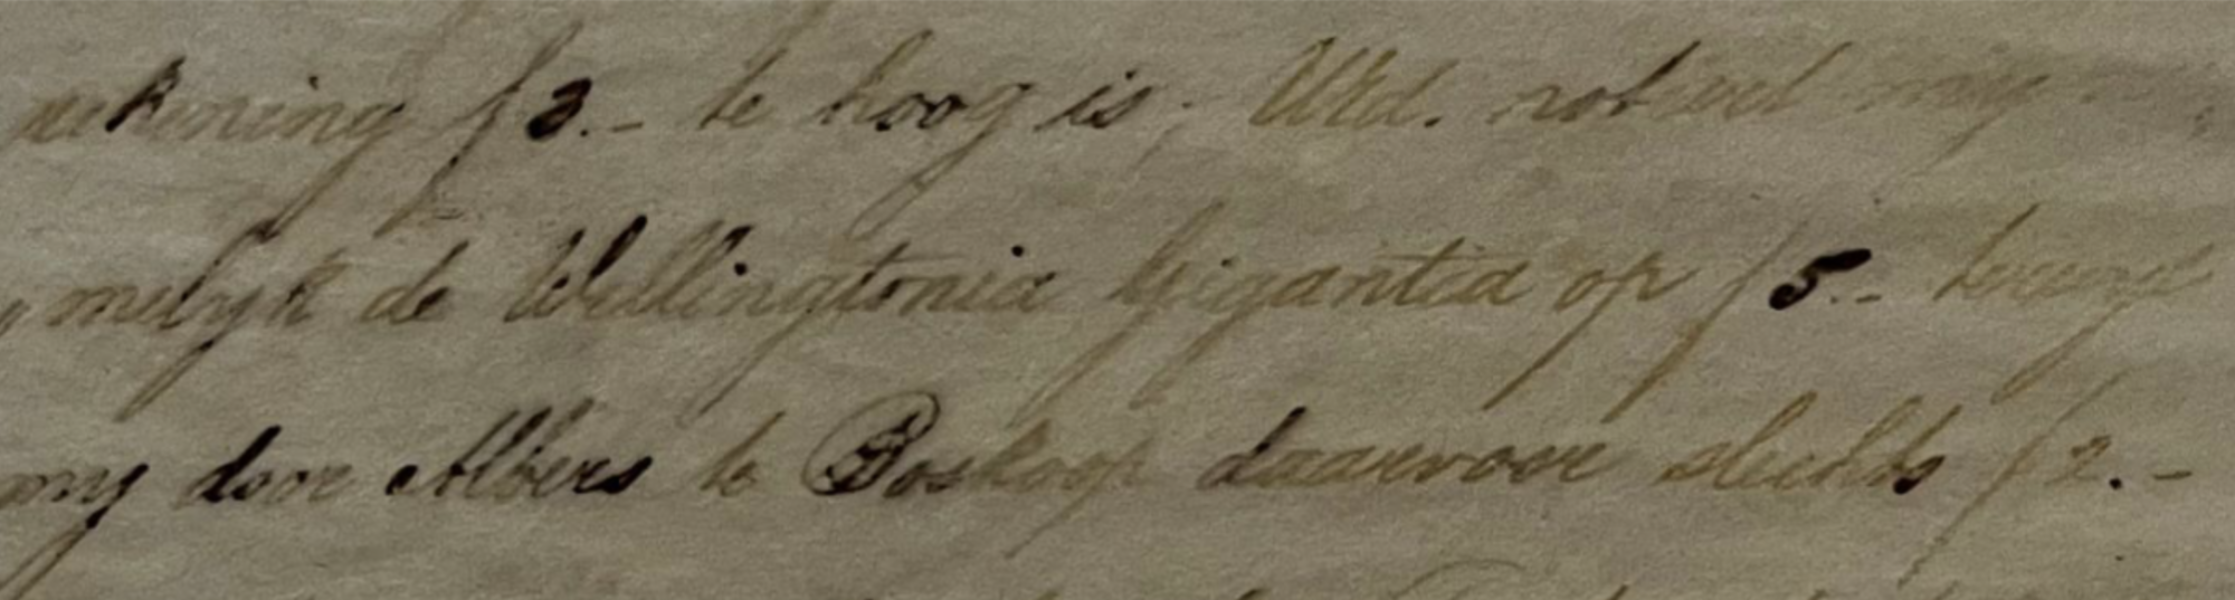 rekening f 3.- te hoog is; UEd. noteert my
melyk de Wellingtonia Gigantea op f 5.- terwyl
my door Albers te Boskoop daarvoor slechts f 2.-